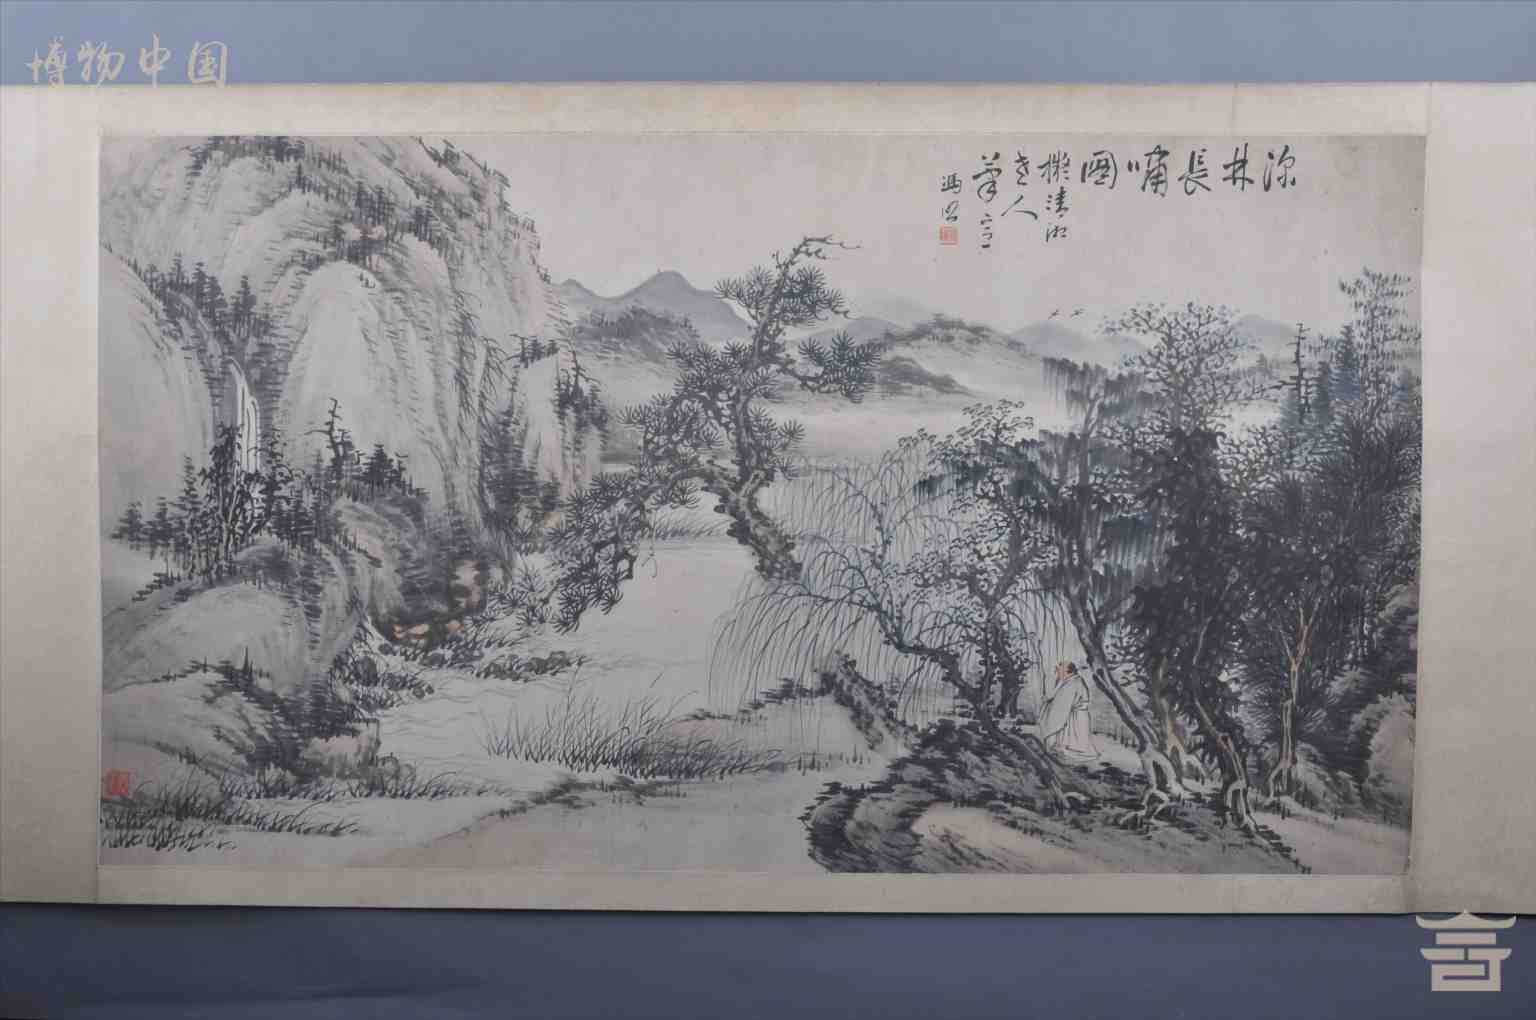 博物中国
深林長嘯圖
擬清湘
老人
筆意
馮